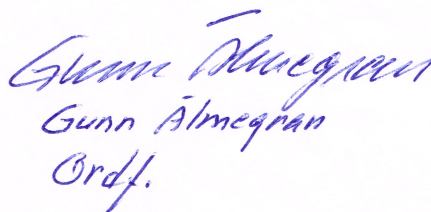 Gunn Älmegran
Gunn Älmegran
Ordf.